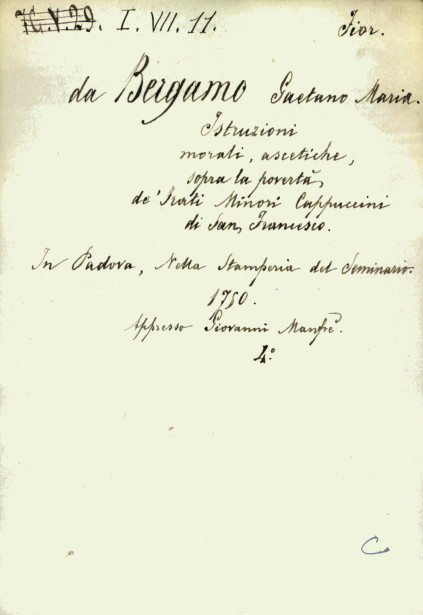 I. VII. 11. Fior.
da Bergamo Gaetano Maria.
Istruzioni
morali, ascetiche,
sopra la povertà,
de' Frati Minori Cappuccini
di San Francesco.
In Padova, Nella Stamperia del Seminario.
1750.
Appresso Giovanni Manfrè.
4.º
C